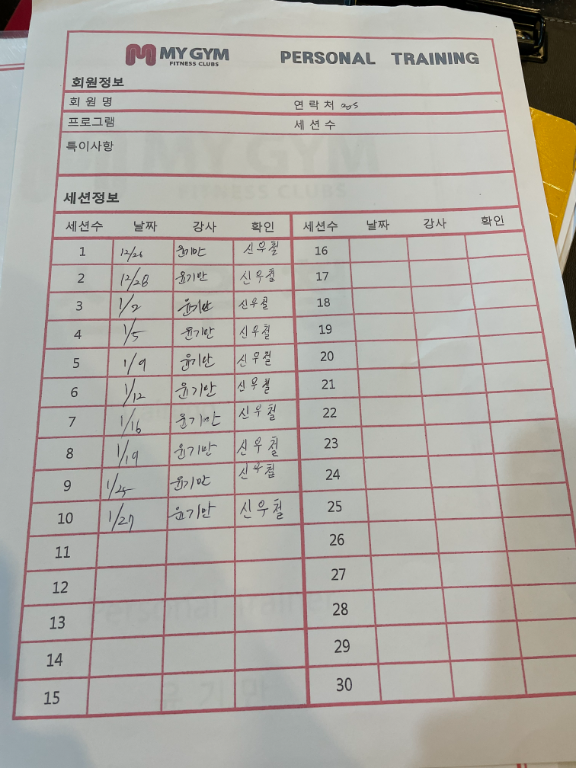 MY GYM
FITNESS CLUBS
PERSONAL TRAINING
회원정보
회 원 명 연 락 처
프로그램 세 션 수
특이사항
세션정보
세션수 날짜 강사 확인 세션수 날짜 강사 확인
1 12/26 윤기만 신우철 16
2 12/28 윤기만 신우철 17
3 1/2 윤기만 신우철 18
4 1/5 윤기만 신우철 19
5 1/9 윤기만 신우철 20
6 1/12 윤기만 신우철 21
7 1/16 윤기만 신우철 22
8 1/19 윤기만 신우철 23
9 1/25 윤기만 신우철 24
10 1/27 윤기만 신우철 25
11 26
12 27
13 28
14 29
15 30